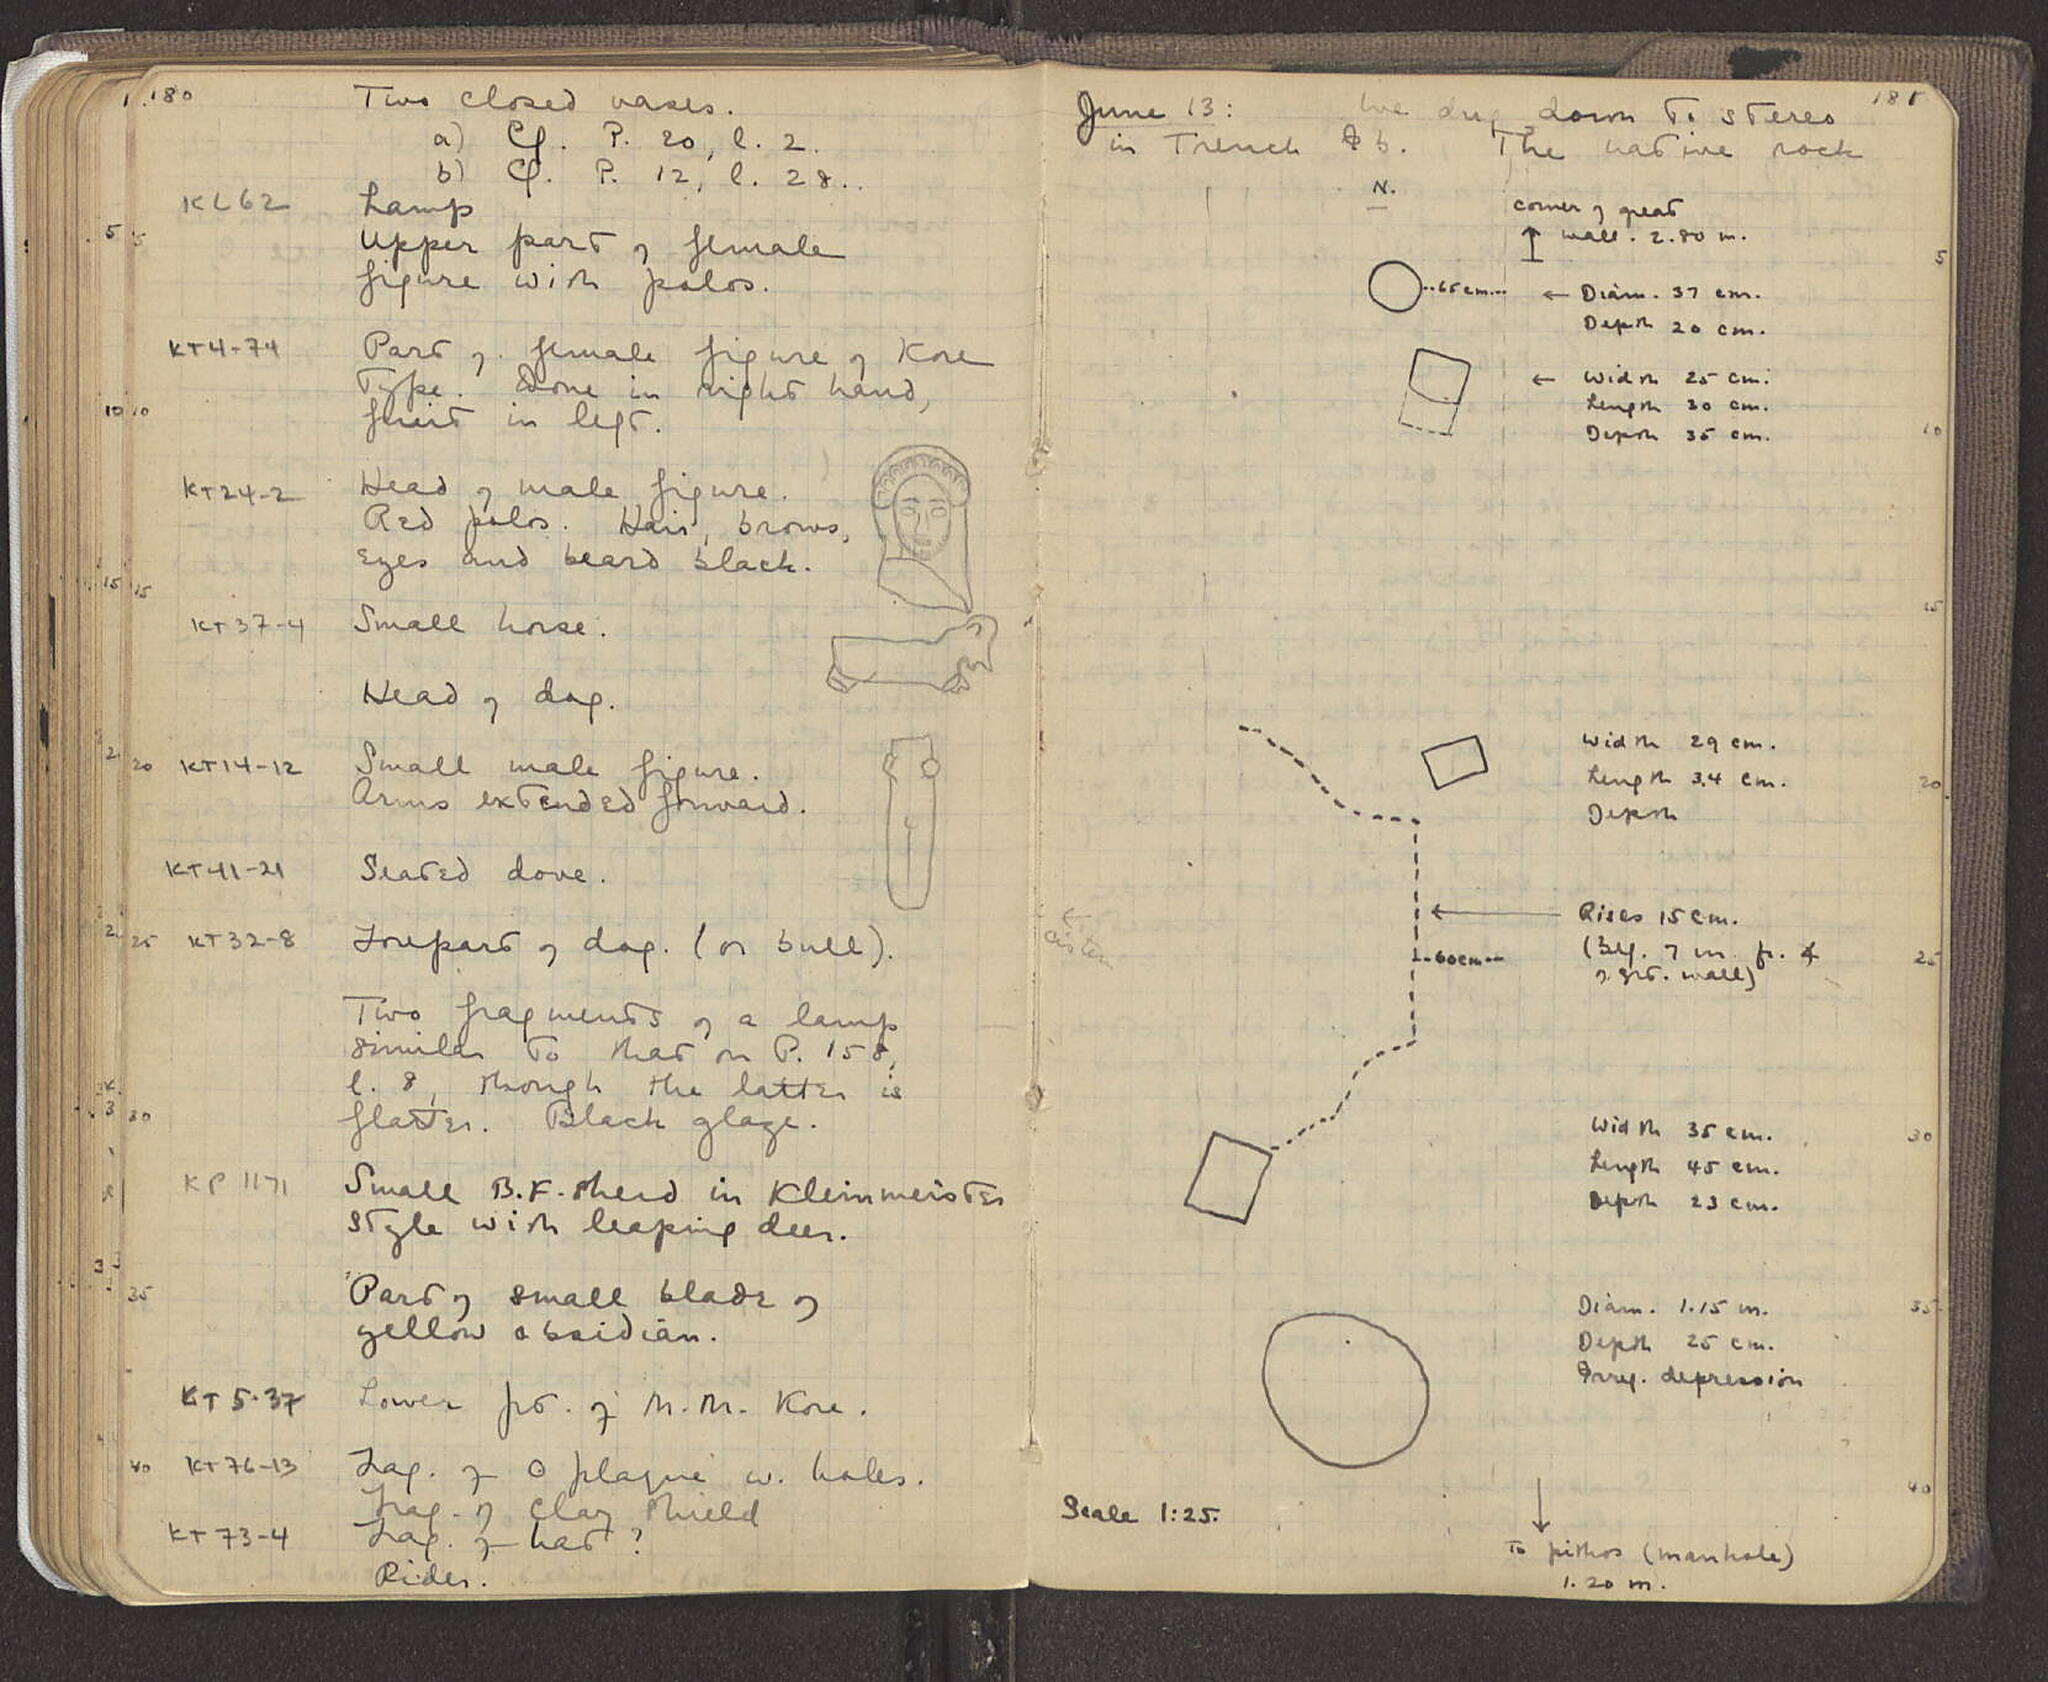 180
Two closed vases.
a) Cf. P. 20, l. 2.
b) Cf. P. 12, l. 28..
KL62 Lamp
5 Upper part of female
figure with polos.
KT4-74 Part of female figure of Kore
Type. Dove in right hand,
10 fruit in left.
KT24-2 Head of male figure.
Red polos. Hair, brows,
Eyes and beard black.
15
KT37-4 Small horse.
Head of dog.
20 KT14-12 Small male figure.
Arms extended forward.
KT41-21 Seated dove.
25 KT32-8 Forepart of dog. (or bull).
Two fragments of a lamp
similar to that on P. 158,
l. 8, though the latter is
30 flatter. Black glaze.
KP 1171 Small B.F. sherd in Kleinmeister
style with leaping deer.
35 Part of small blade of
yellow obsidian.
KT 5-37 Lower pt. of M.M. Kore.
40 KT76-13 Frag. of O plaque w. holes.
Frag. of clay shield
KT 73-4 Frag. of hat?
Rider.
181
June 13: We dug down to stereo
in Trench b. The native rock
N.
corner of great
wall. 2.80 m.
5
..65cm...
← Diam. 37 cm.
Depth 20 cm.
← Width 25 cm.
Length 30 cm.
Depth 35 cm.
10
15
Width 29 cm.
Length 34 cm.
20
Depth
← cistern
Rises 15 cm.
(Beg. 7 m. fr.
of grt. wall)
..60cm...
25
Width 35 cm.
30
Length 45 cm.
Depth 23 cm.
Diam. 1.15 m.
35
Depth 25 cm.
Irreg. depression
40
Scale 1:25.
To pithos (manhole)
1.20 m.